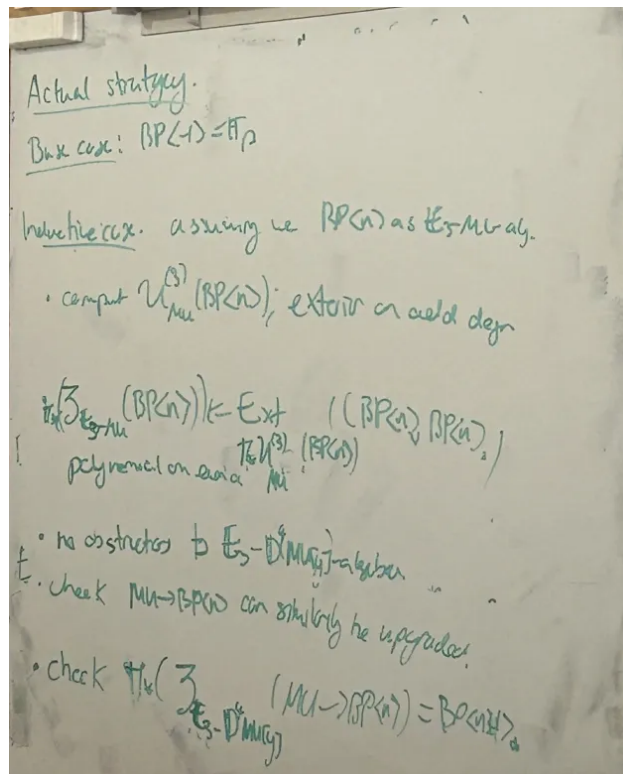 Actual stratgey.
Base case: BP⟨-1⟩ = F_p
Inductive case. assuming we BP⟨n⟩ as E_3-MU-alg.
· comput U^{(3)}_{MU}(BP⟨n⟩); exterior on odd degn
π_*(Z_{E_3-MU}(BP⟨n⟩)) ⇐ Ext_{π_* U^{(3)}_{MU}(BP⟨n⟩)}(BP⟨n⟩_*, BP⟨n⟩_*)
polynomial on even
· no obstructios to E_3-D^4(MU[y])-algebra
· check MU→BP⟨n⟩ can similarly be upgraded.
· check π_*(Z_{E_3-D^4MU[y]}(MU→BP⟨n⟩) = BP⟨n+1⟩_*